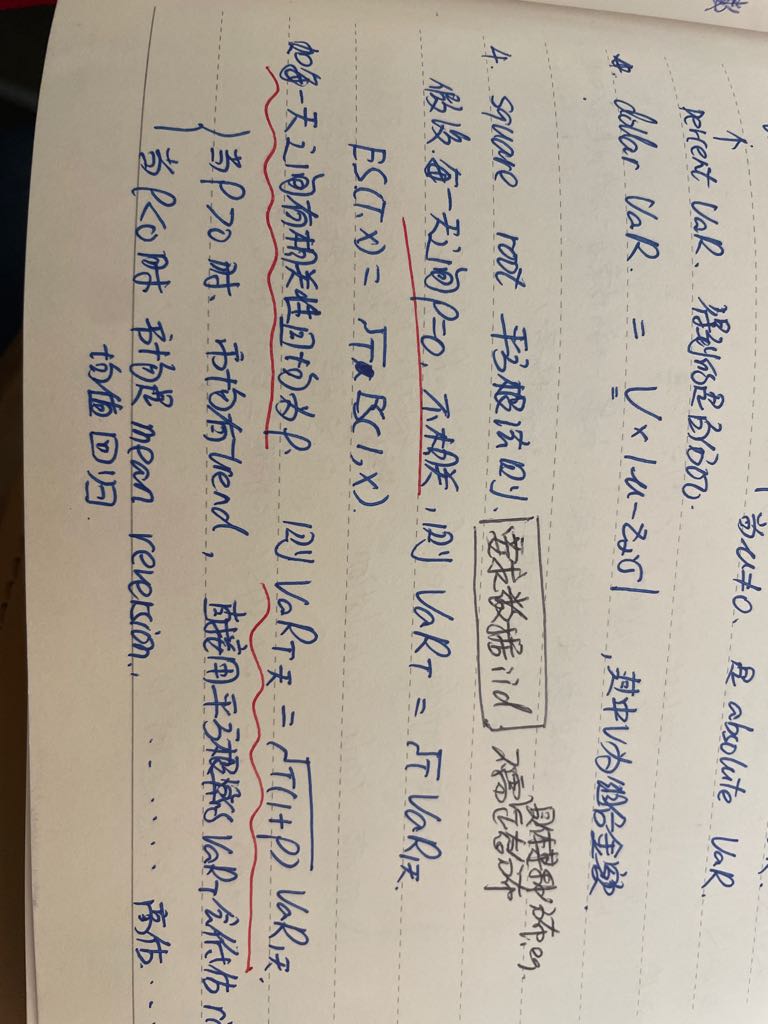 当u≠0、是absolute VaR.
percent VaR、得到的是百分比.
dollar VaR. = V×|u-Zασ| ,其中V为组合金额.
4. square root 平方根法则、 要求数据iid
不需正态分布
具体是啥分布,eg.
假设每一天之间ρ=0, 不相关, 则 VaR_T = √T VaR_1天.
ES(T,X) = √T × ES(1,X).
如每一天之间有相关性且均为ρ. 则 VaR_T天 = √T(1+ρ) VaR_1天.
当ρ>0时、市场有trend, 直接用平方根算的VaR_T会低估
当ρ<0时 市场是mean reversion. ...... 高估..
均值回归.